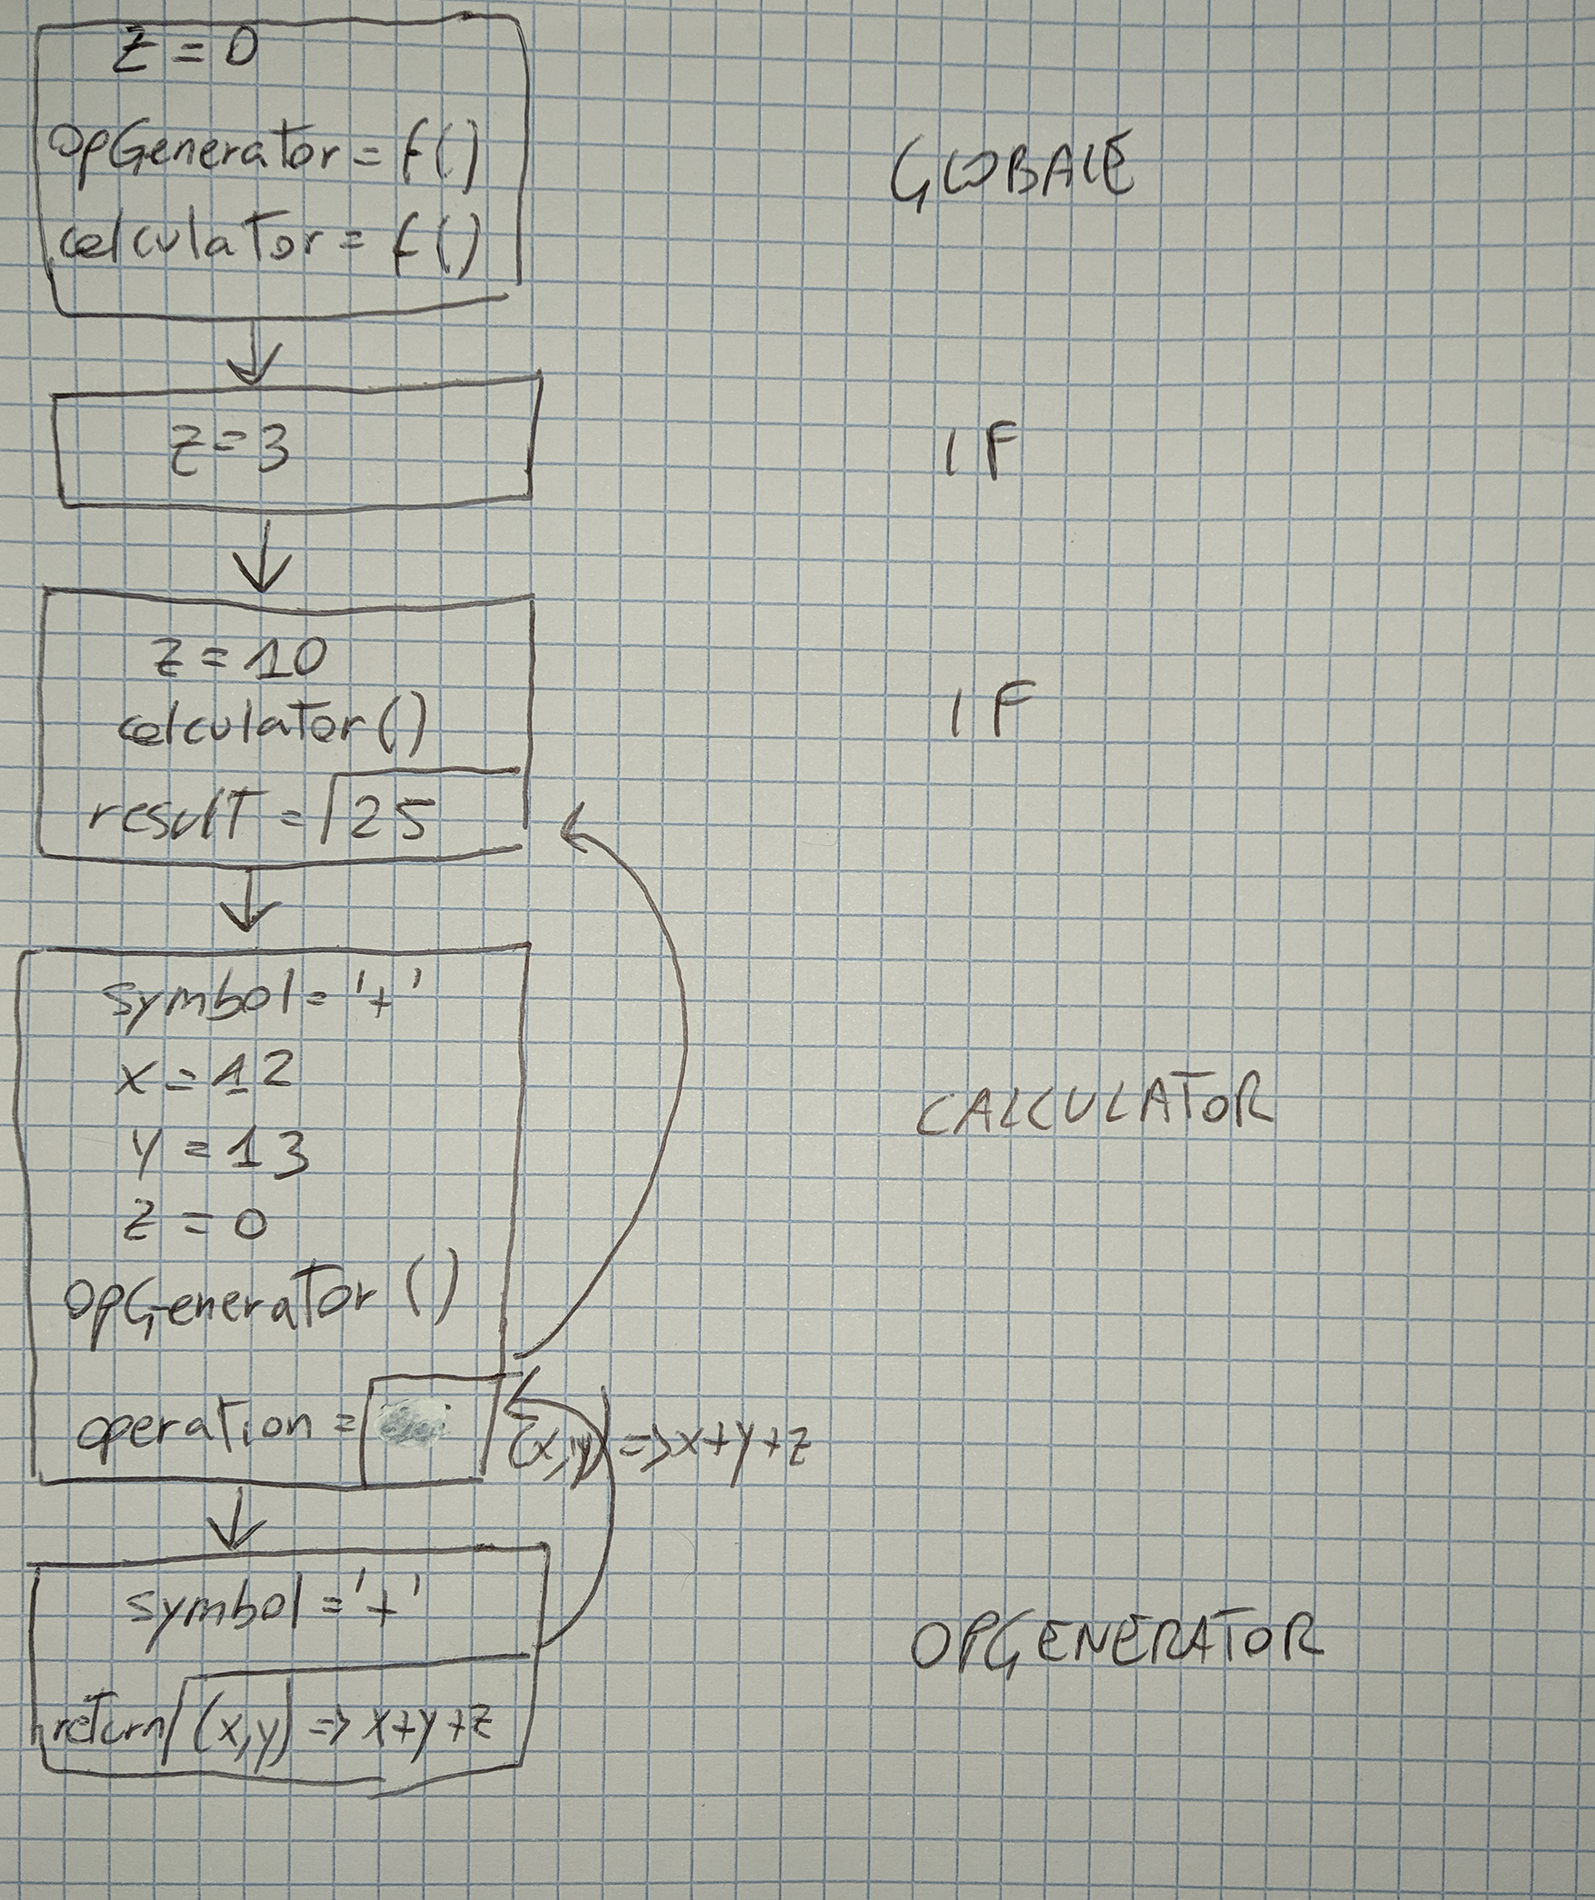 z = 0
opGenerator = f()
calculator = f()
GLOBALE
z = 3
IF
z = 10
calculator()
result = 25
IF
symbol = '+'
x = 12
y = 13
z = 0
opGenerator ()
operation =
(x,y) => x+y+z
CALCULATOR
symbol = '+'
return (x,y) => x+y+z
OPGENERATOR